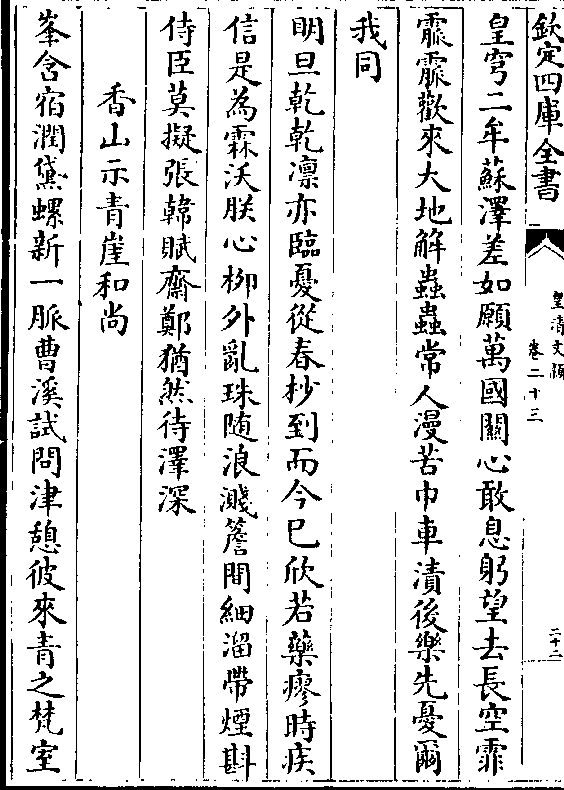 欽定四庫全書
皇清文穎
卷二十三
二十二
皇穹二牟蘇澤差如願萬國關心敢息躬望去長空霏
霢霢歡來大地解蟲蟲常人漫苦巾車漬後樂先憂爾
我同
明旦乾乾凛亦臨憂從春杪到而今已欣若藥瘳時疾
信是為霖沃朕心栁外亂珠随浪濺簷間細溜帶煙斟
侍臣莫擬張韓賦齋鄭猶然待澤深
香山示青崖和尚
峯含宿潤黛螺新一脈曹溪試問津憩彼來青之梵室